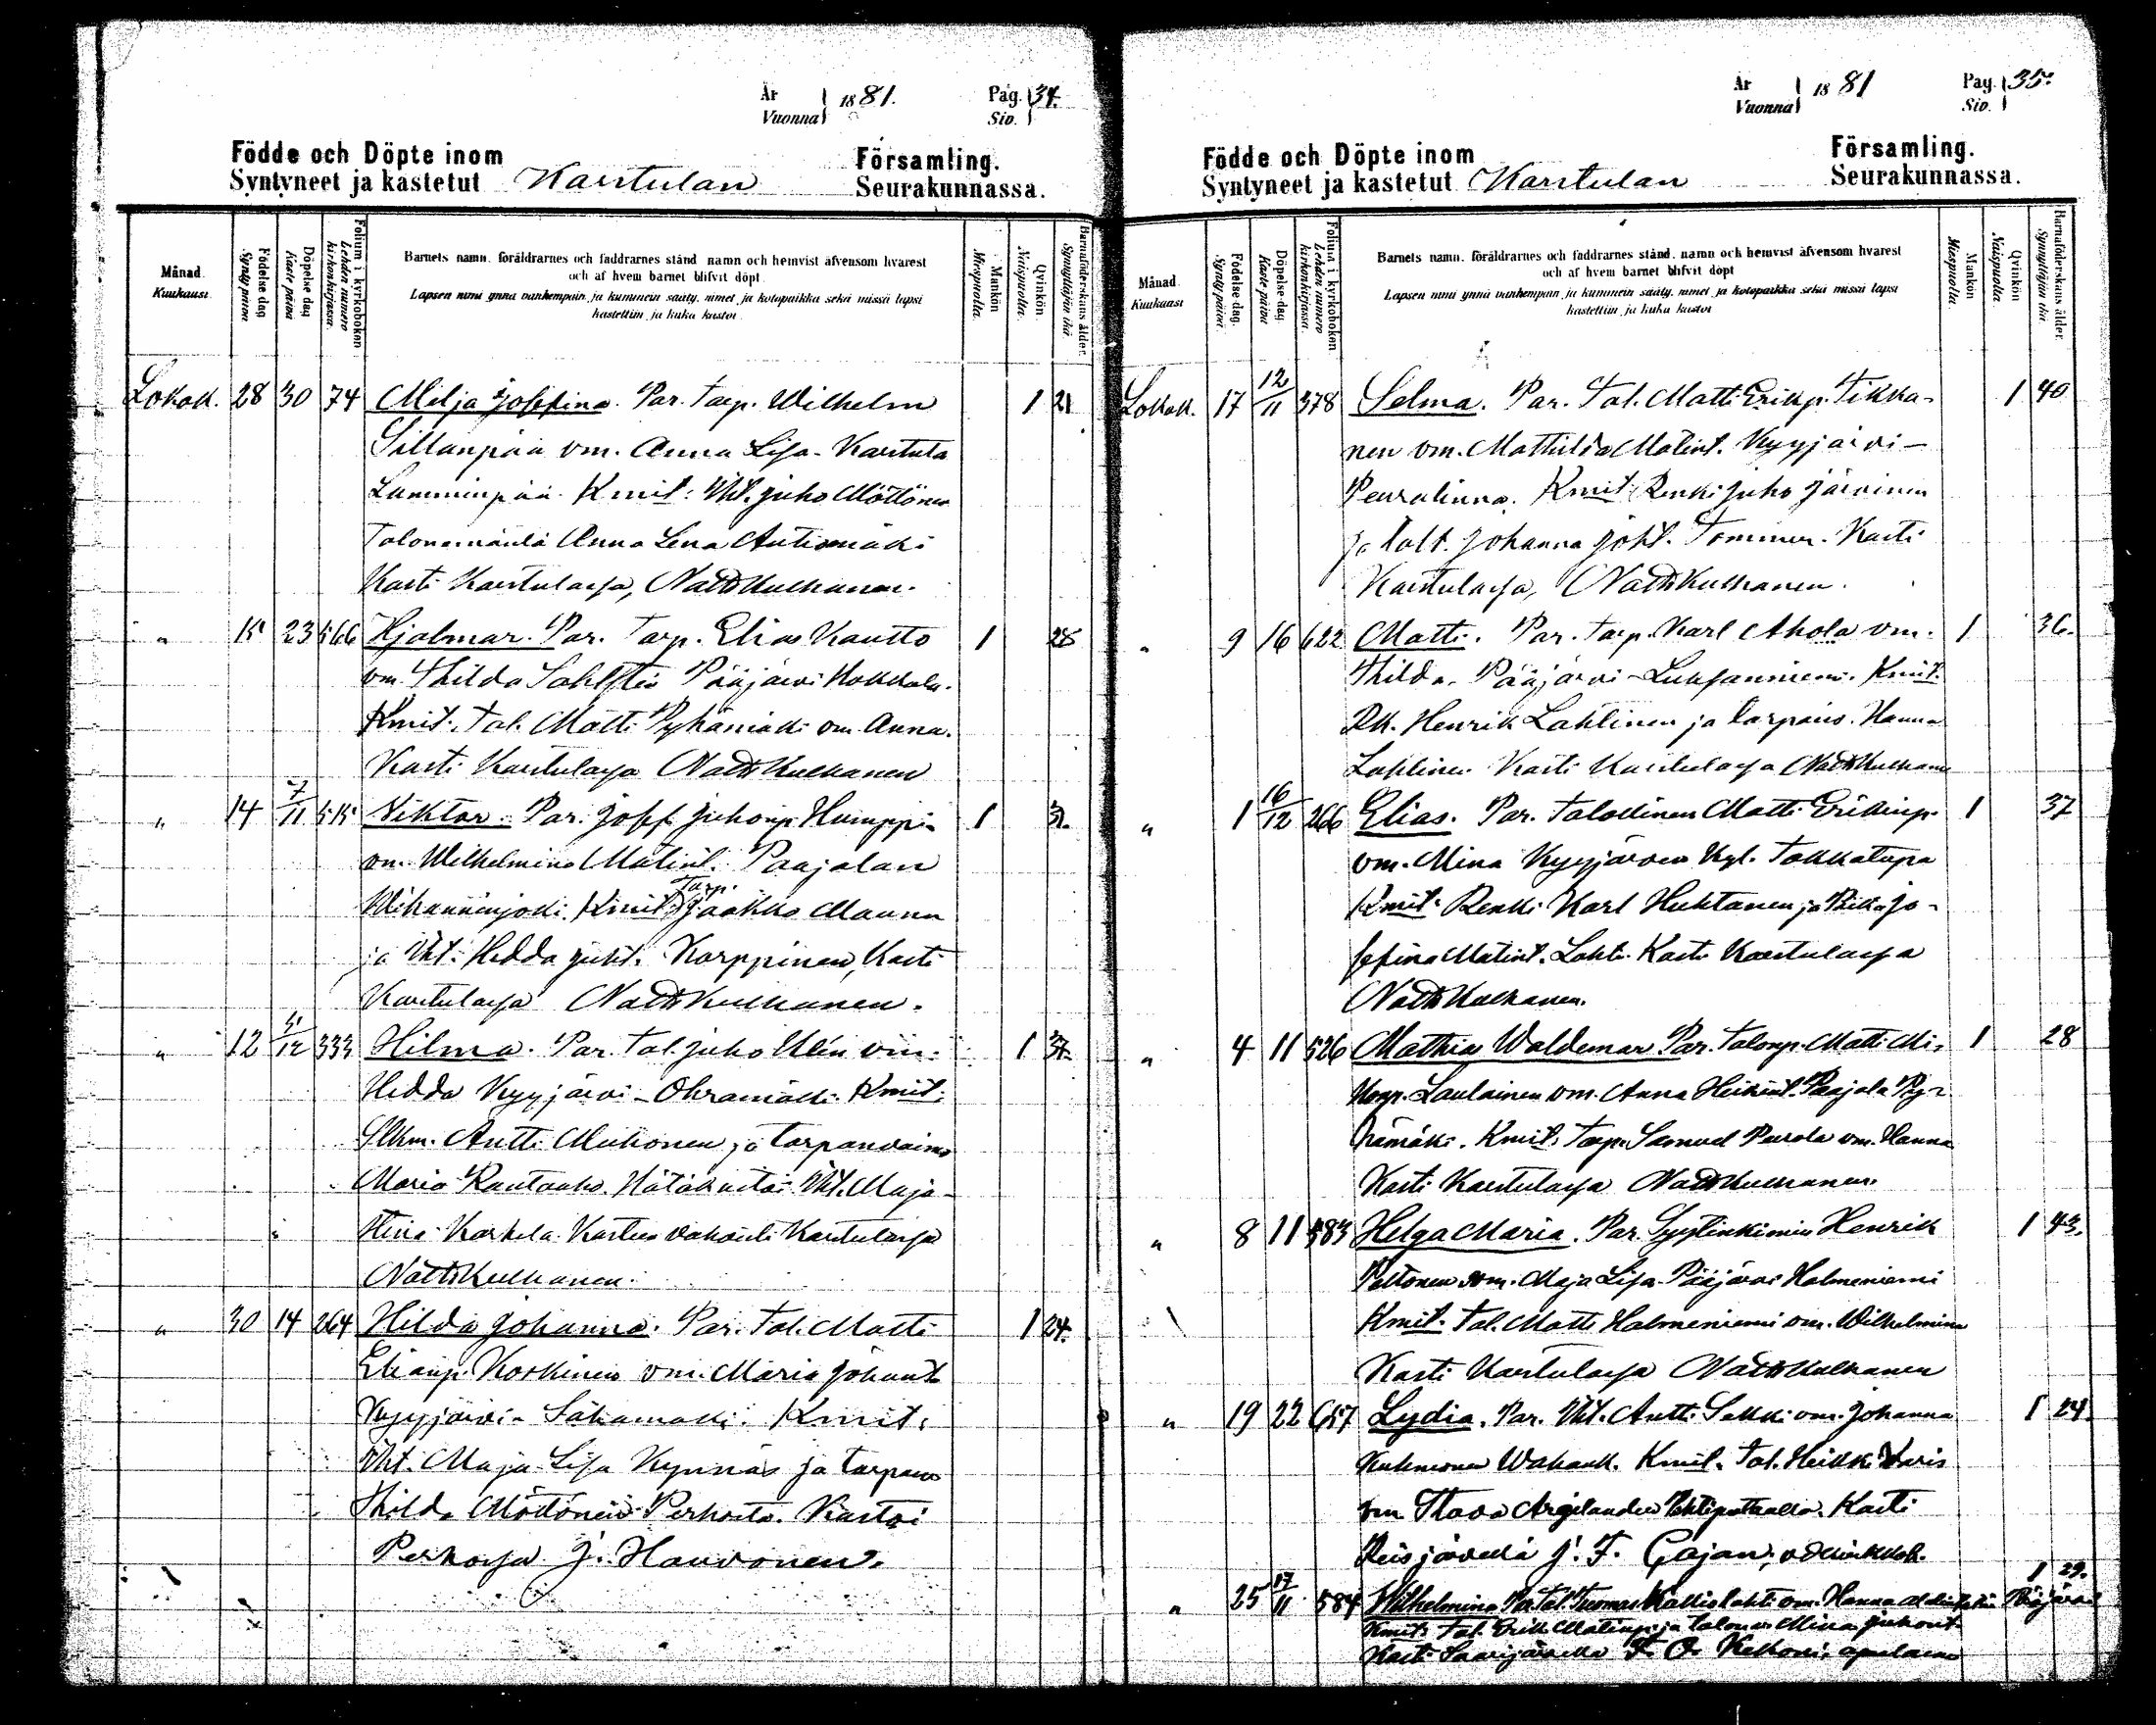 År
Vuonna
1881.
Pag. 34.
Siv.
Födde och Döpte inom
Syntyneet ja kastetut
Karstulan
Församling.
Seurakunnassa.
Månad.
Kuukausi.
Födelse dag
Synty päivä
Döpelse dag
Kaste päivä
Folium i kyrkoboken
Lehden numero kirkonkirjassa.
Barnets namn, föräldrarnes och faddrarnes stånd namn och hemvist äfvensom hvarest
och af hvem barnet blifvit döpt
Lapsen nimi ynnä vanhempain ja kummein sääty, nimet ja kotopaikka sekä missä lapsi
kastettiin ja kuka kastoi
Mankön
Miespuolia.
Qvinkön
Naispuolia.
Barnaföderskans ålder.
Synnyttäjän ikä
Lokak. 28 30 74 Milja Josefina. Par. Torp. Wilhelm 1 21
Sillanpää vm. Anna Lisa. Karstula
Lamminpää. Kmit: Vht. Juho Möttönen
Talonemäntä Anna Lena Autiomäki
Kasti Karstulassa, Natt Kulhanen.
" 15 23 566 Hjalmar. Par. Torp. Elias Kautto 1 28
vm. Thilda Sahlsten Pääjärvi Hokkala.
Kmit. Tal. Matti Pyhämäki vm. Anna.
Kasti Karstulassa Natt Kulhanen
" 14 7/11 515 Viktor. Par. Josef Juhonp. Humppi 1
vm. Wilhelmina Matint. Paajalan
Torp.
Kmit: Jaakko Mannu
ja Vht. Hedda Juht. Korppinen, Kasti
Karstulassa Natt Kulhanen.
" 12 5/12 333 Hilma. Par. Tal. Juho Ulén vm. 1 37.
Hedda Kyyjärvi - Ohramäki. Kmit:
Antti Muhonen ja torpanvaimo
Maria Rautaaho. Hätäkastoi Vht. Maja
Stina Karhela. Kasteen vahvisti Karstulassa
Natt Kulhanen.
" 30 14 264 Hilda Johanna. Par. Tal. Matti 1 24.
Elianp. Koskinen vm. Maria Johant.
Kyyjärvi - Kmit:
Vht. Maja Lisa Kynnäs ja torpanv.
Thilda Möttönen Perhosta. Kastoi
Perhossa J. Hauvonen.
År
Vuonna
1881
Pag. 35.
Siv.
Födde och Döpte inom
Syntyneet ja kastetut
Karstulan
Församling.
Seurakunnassa.
Månad
Kuukausi
Födelse dag.
Synty päivä.
Döpelse dag
Kaste päivä
Folium i kyrkoboken
Lehden numero kirkonkirjassa.
Barnets namn, föräldrarnes och faddrarnes stånd, namn och hemvist äfvensom hvarest
och af hvem barnet blifvit döpt
Lapsen nimi ynnä vanhempain ja kummein sääty, nimet ja kotopaikka sekä missä lapsi
kastettiin ja kuka kastoi
Mankön
Miespuolia.
Qvinkön
Naispuolia.
Barnaföderskans ålder.
Synnyttäjän ikä
Lokak. 17 12/11 378 Selma. Par. Tal. Matti Erikp. Tikka- 1 40
nen vm. Mathilda Matint. Kyyjärvi -
Peuralinna. Kmit: Renki Juho Järvinen
ja talt. Johanna Joht. Kasti
Karstulassa, Natt Kulhanen.
" 9 16 622 Matti. Par. Torp. Karl Ahola vm. 1 36.
Thilda. Pääjärvi - Kmit.
Henrik Lahtinen ja torpanv. Hanna
Lahtinen Kasti Karstulassa Natt Kulhanen
" 1 16/12 266 Elias. Par. Talollinen Matti Erikinp. 1 37
vm. Mina Kyyjärven kyl. Tokkatupa
Kmit. Renki Karl Huhtanen ja Piika Jo-
sefina Matint. Lahti. Kasti Karstulassa
Natt Kulhanen.
" 4 11 526 Mathia Waldemar Par. Talonp. Matti Mi- 1 28
konp. Laulainen vm. Anna Heikint. Paajala Py-
hämäki. Kmit: Torp. Samuel Peurala vm. Hanna
Kasti Karstulassa Natt Kulhanen.
" 8 11 583 Helga Maria. Par. Syytinkimies Henrik 1 43.
Peltonen vm. Maja Lisa. Pääjärvi Halmeniemi
Kmit. Tal. Matti Halmeniemi vm. Wilhelmina
Kasti Karstulassa Natt Kulhanen
" 19 22 657 Lydia. Par. Vht. Antti Sakki vm. Johanna 1 24.
Kuhmonen Wahank. Kmit. Tal. Heikki
vm Stava Argelander Kasti
Reisjärvellä J. F. Cajan,
" 25 17/11 584 Wilhelmina Par. Tal. Tuomas Kalliolahti vm. Hanna Pääjärvi 1 29.
Kmit: Tal. Erik Matinp. ja talonv. Mina Juhont.
Kasti Saarijärvellä F. O.